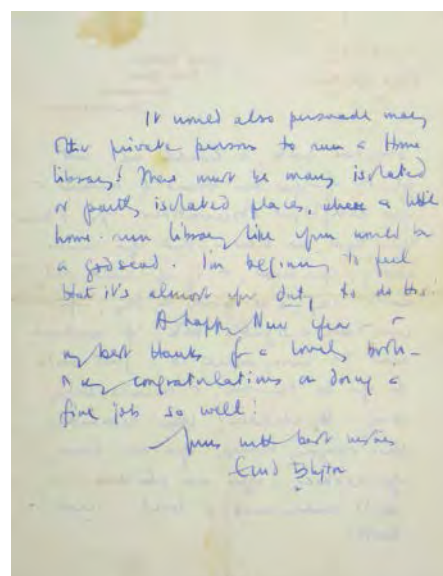 It would also persuade many
other private persons to run a Home
Library! There must be many isolated
or partly isolated places, where a little
home-run library like yours would be
a godsend. I'm beginning to feel
that it's almost your duty to do this!
A happy New Year -
my best thanks for a lovely book -
my congratulations on doing a
fine job so well!
Yours with best wishes
Enid Blyton